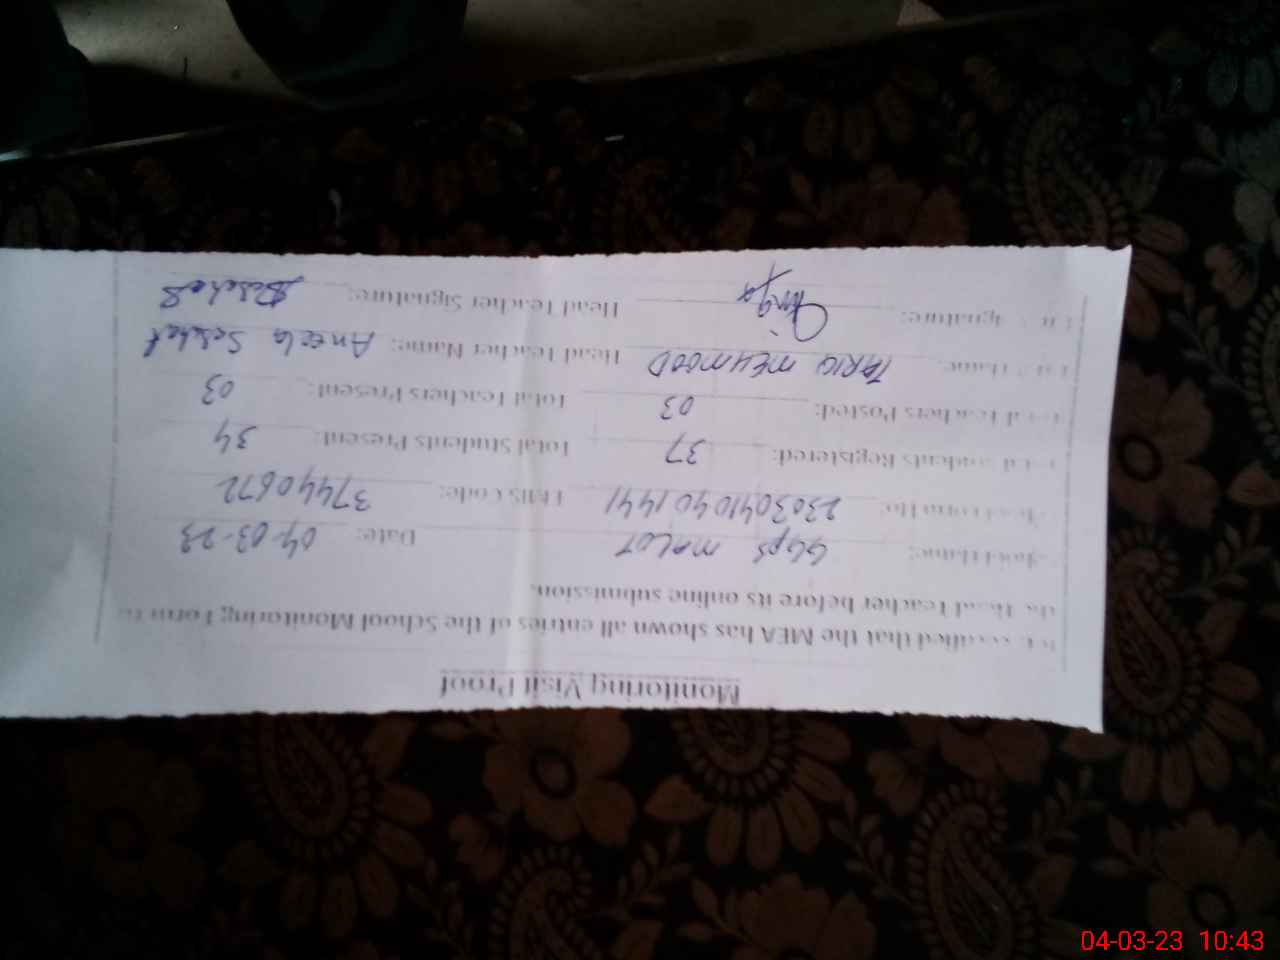 Monitoring Visit Proof
that the MEA has shown all entries of the School Monitoring Form to
the Head Teacher before its online submission.
GGPS MALOT Date: 04-03-23
EMIS Code: 37440672
Students Registered: 37 Total Students Present: 34
Teachers Posted: 03 Total Teachers Present: 03
Name: TARIQ MEHMOOD Head Teacher Name: Aneela
Signature: Head Teacher Signature:
04-03-23 10:43